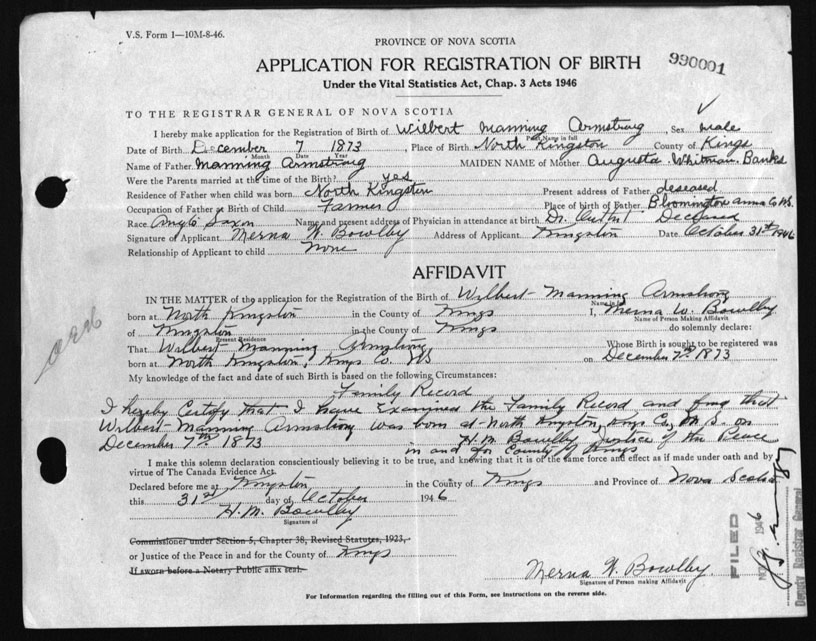 V.S. Form 1—10M-8-46.
PROVINCE OF NOVA SCOTIA
990001
APPLICATION FOR REGISTRATION OF BIRTH
Under the Vital Statistics Act, Chap. 3 Acts 1946
TO THE REGISTRAR GENERAL OF NOVA SCOTIA
I hereby make application for the Registration of Birth of Wilbert Manning Armstrong, Sex male
Print Name in full
Date of Birth December 7 1873, Place of Birth North Kingston County of Kings
Month Date Year
Name of Father Manning Armstrong MAIDEN NAME of Mother Augusta Whitman Banks
Were the Parents married at the time of the Birth? yes
Residence of Father when child was born North Kingston Present address of Father deseased
Occupation of Father at Birth of Child Farmer Place of birth of Father Bloomington Anna Co N.S.
Race Anglo Saxon Name and present address of Physician in attendance at birth Dr. Deceased
Signature of Applicant Merna W. Bowlby Address of Applicant Kingston Date October 31st 1946
Relationship of Applicant to child None
AFFIDAVIT
IN THE MATTER of the application for the Registration of the Birth of Wilbert Manning Armstrong
Name in full
born at North Kingston in the County of Kings I, Merna W. Bowlby
Name of Person Making Affidavit
of Kingston in the County of Kings do solemnly declare:
Present Residence
That Wilbert Manning Armstrong Whose Birth is sought to be registered was
born at North Kingston, Kings Co. NS on December 7th 1873
My knowledge of the fact and date of such Birth is based on the following Circumstances:
Family Record
I hereby Certify that I have Examined the Family Record and find that
Wilbert Manning Armstrong was born at North Kingston, Kings Co, N.S. on
December 7th 1873 H.M. Bowlby Justice of the Peace
in and for County of Kings
I make this solemn declaration conscientiously believing it to be true, and knowing that it is of the same force and effect as if made under oath and by
virtue of The Canada Evidence Act.
Declared before me at Kingston in the County of Kings and Province of Nova Scotia
this 31st day of October 1946
H. M. Bowlby
Signature of
Commissioner under Section 5, Chapter 38, Revised Statutes, 1923,
or Justice of the Peace in and for the County of Kings
If sworn before a Notary Public affix seal.
Merna W. Bowlby.
Signature of Person making Affidavit
FILED
NOV 1946
Deputy Registrar General
For Information regarding the filling out of this Form, see instructions on the reverse side.